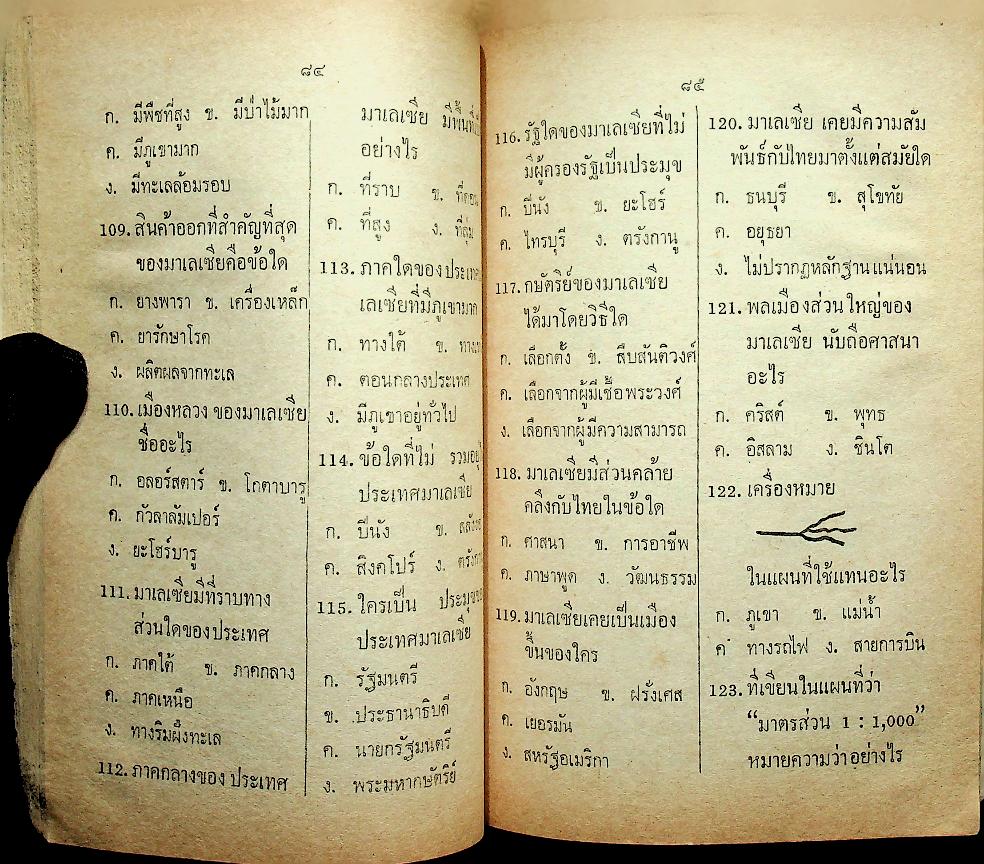 ๘๔
ก. มีพืชที่สูง ข. มีป่าไม้มาก
ค. มีภูเขามาก
ง. มีทะเลล้อมรอบ
109. สินค้าออกที่สำคัญที่สุด
ของมาเลเซียคือข้อใด
ก. ยางพารา ข. เครื่องเหล็ก
ค. ยารักษาโรค
ง. ผลิตผลจากทะเล
110. เมืองหลวง ของมาเลเซีย
ชื่ออะไร
ก. อลอร์สตาร์ ข. โกตาบารู
ค. กัวลาลัมเปอร์
ง. ยะโฮร์บารู
111. มาเลเซียมีที่ราบทาง
ส่วนใดของประเทศ
ก. ภาคใต้ ข. ภาคกลาง
ค. ภาคเหนือ
ง. ทางริมฝั่งทะเล
112. ภาคกลางของ ประเทศ
มาเลเซีย
อย่างไร
ก. ที่ราบ ข.
ค. ที่สูง ง.
113. ภาคใดของ
เลเซียที่มีภูเขามาก
ก. ทางใต้ ข.
ค. ตอนกลางประเทศ
ง. มีภูเขาอยู่ทั่วไป
114. ข้อใดที่ไม่
ประเทศมาเลเซีย
ก. ปีนัง ข.
ค. สิงคโปร์ ง.
115. ใครเป็น
ประเทศมาเลเซีย
ก. รัฐมนตรี
ข. ประธานาธิบดี
ค. นายกรัฐมนตรี
ง. พระมหากษัตริย์
๘๕
116. รัฐใดของมาเลเซียที่ไม่
มีผู้ครองรัฐเป็นประมุข
ก. ปีนัง ข. ยะโฮร์
ค. ไทรบุรี ง. ตรังกานู
117. กษัตริย์ของมาเลเซีย
ได้มาโดยวิธีใด
ก. เลือกตั้ง ข. สืบสันติวงศ์
ค. เลือกจากผู้มีเชื้อพระวงศ์
ง. เลือกจากผู้มีความสามารถ
118. มาเลเซียมีส่วนคล้าย
คลึงกับไทยในข้อใด
ก. ศาสนา ข. การอาชีพ
ค. ภาษาพูด ง. วัฒนธรรม
119. มาเลเซียเคยเป็นเมือง
ขึ้นของใคร
ก. อังกฤษ ข. ฝรั่งเศส
ค. เยอรมัน
ง. สหรัฐอเมริกา
120. มาเลเซีย เคยมีความสัม
พันธ์กับไทยมาตั้งแต่สมัยใด
ก. ธนบุรี ข. สุโขทัย
ค. อยุธยา
ง. ไม่ปรากฏหลักฐานแน่นอน
121. พลเมืองส่วนใหญ่ของ
มาเลเซีย นับถือศาสนา
อะไร
ก. คริสต์ ข. พุทธ
ค. อิสลาม ง. ชินโต
122. เครื่องหมาย
ในแผนที่ใช้แทนอะไร
ก. ภูเขา ข. แม่น้ำ
ค ทางรถไฟ ง. สายการบิน
123. ที่เขียนในแผนที่ว่า
“มาตรส่วน 1 : 1,000”
หมายความว่าอย่างไร